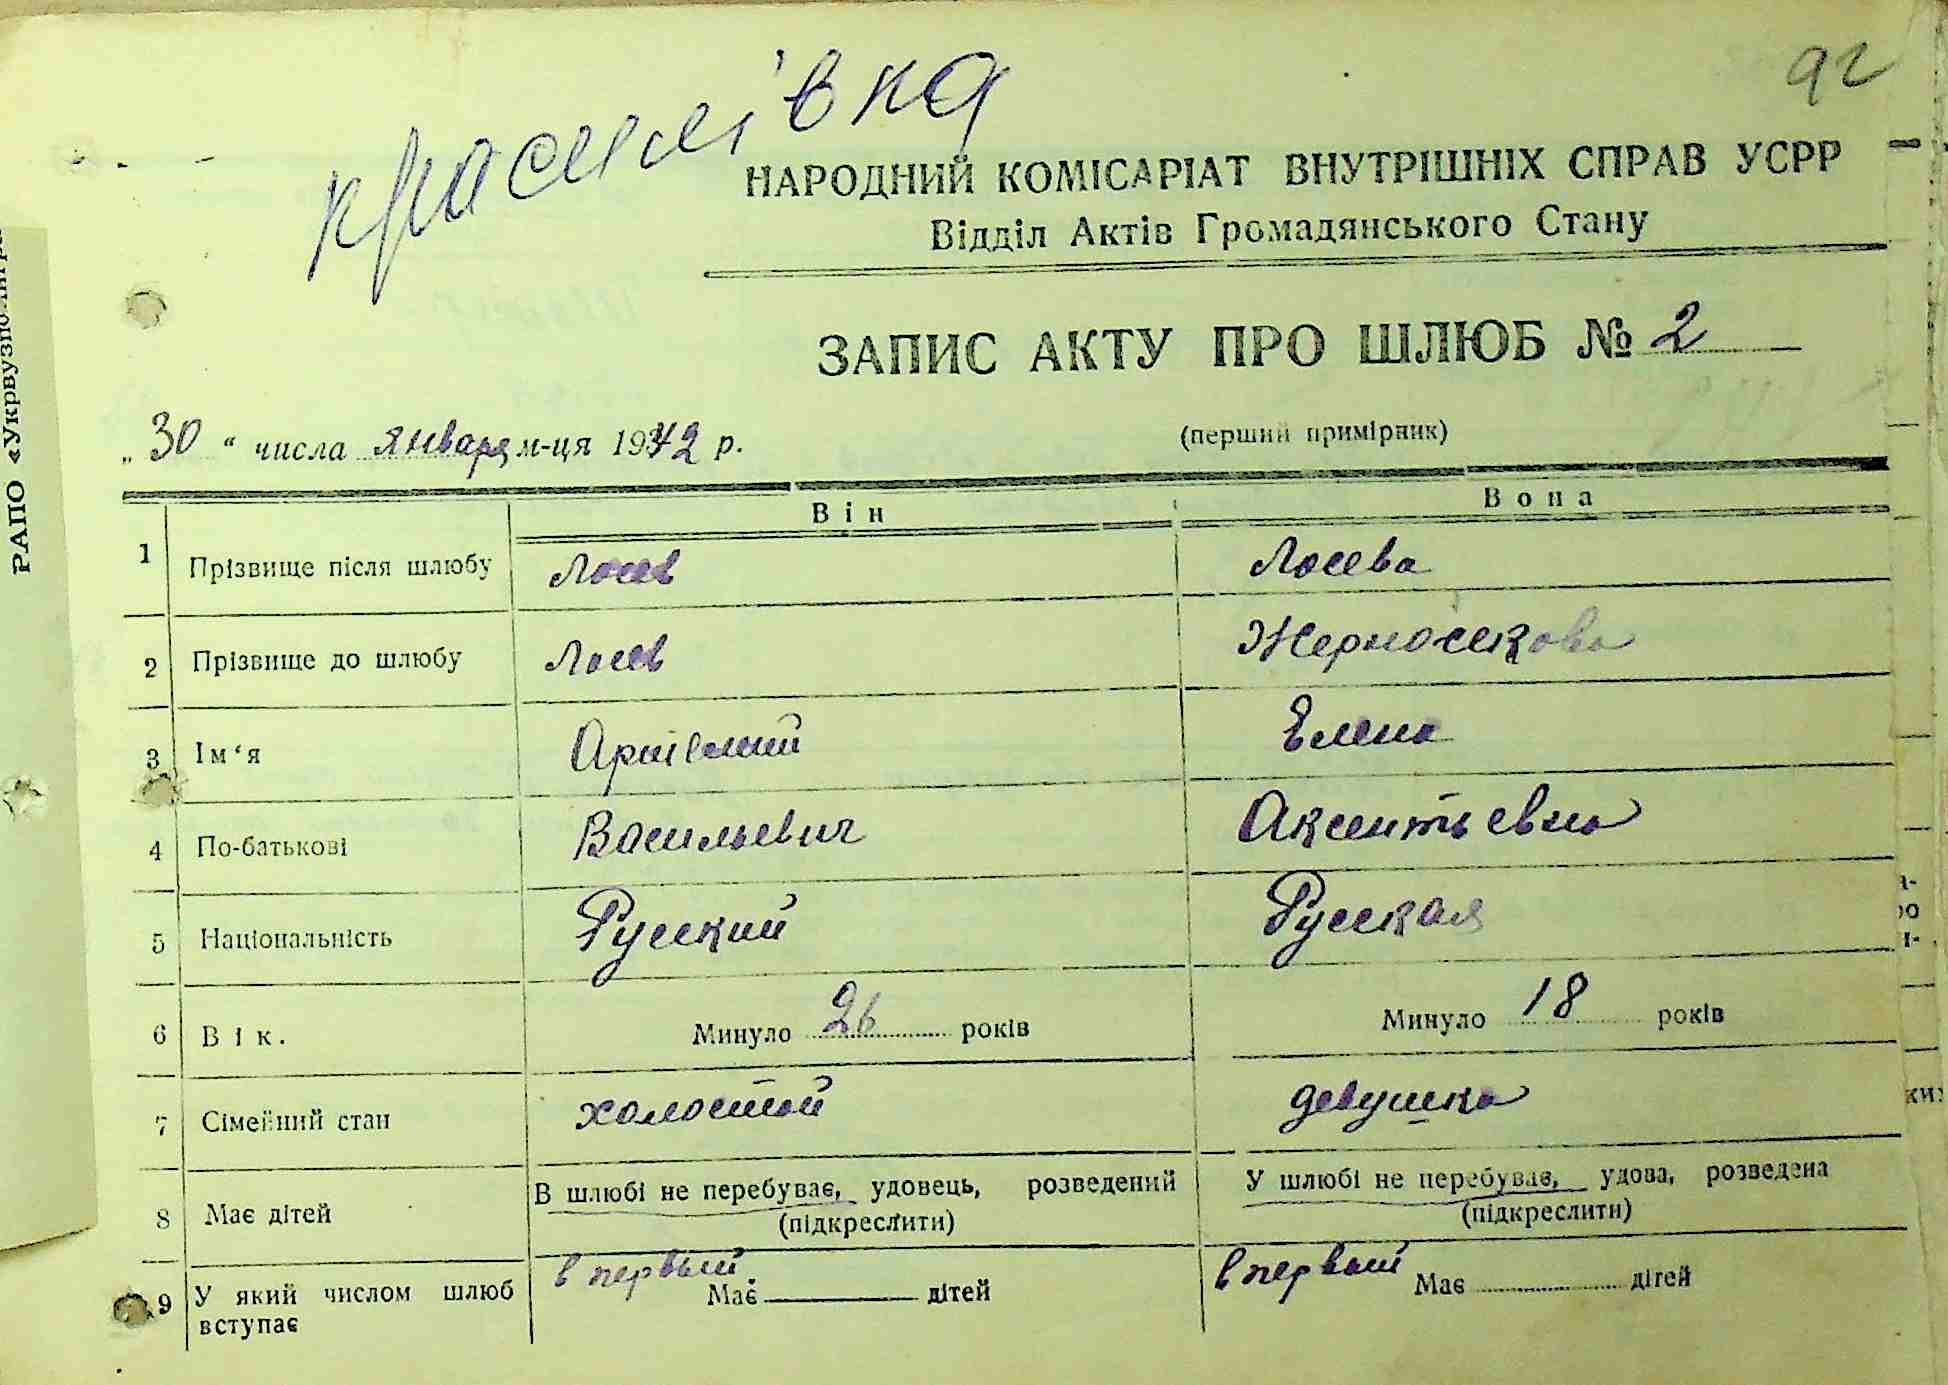 92
красилівка
НАРОДНИЙ КОМІСАРІАТ ВНУТРІШНІХ СПРАВ УСРР
Відділ Актів Громадянського Стану
ЗАПИС АКТУ ПРО ШЛЮБ № 2
„30“ числа января м-ця 1942 р. (перший примірник)
РАПО «Укрвузполигра
Він Вона
1 Прізвище після шлюбу Лосев Лосева
2 Прізвище до шлюбу Лосев Жерносекова
3 Ім‘я Артемий Елена
4 По-батькові Васильевич Аксентьевна
5 Національність Русский Русская
6 Вік. Минуло 26 років Минуло 18 років
7 Сімейний стан холостой девушка
8 Має дітей В шлюбі не перебуває, удовець, розведений У шлюбі не перебуває, удова, розведена
(підкреслити) (підкреслити)
9 У який числом шлюб вступає в первый Має дітей в первый Має дітей